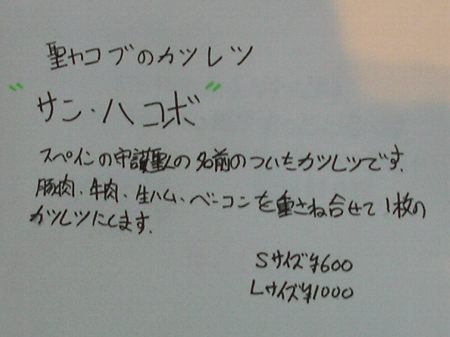 聖ヤコブのカツレツ
"サン・ハコボ"
スペインの守護聖人の名前のついたカツレツです。
豚肉、牛肉、生ハム、ベーコンを重さね合せて1枚の
カツレツにします。
Sサイズ¥600
Lサイズ¥1000